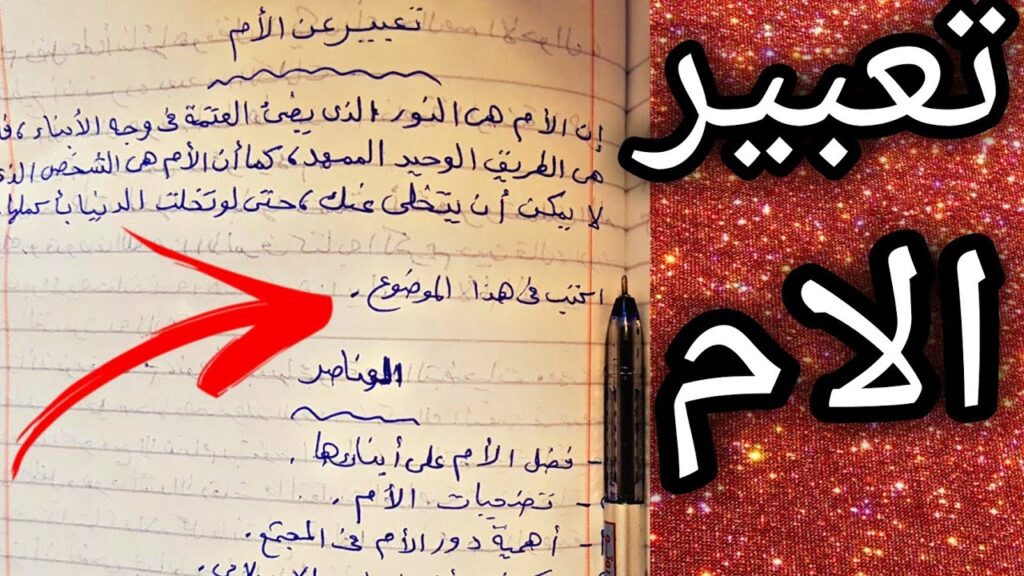 تعبير عن الأم
إن الأم هى النور الذى يضئ العتمة فى وجه الأبناء ،
هى الطريق الوحيد الممهد، كما أن الأم هى الشخص الذى
لا يمكن أن يتخلى عنك ، حتى لو تخلت الدنيا بأكملها.
اكتب فى هذا الموضوع .
العناصر
- فضل الأم على أبنائها .
- تضحيات الأم .
- أهمية دور الأم فى المجتمع .
تعبير
الام